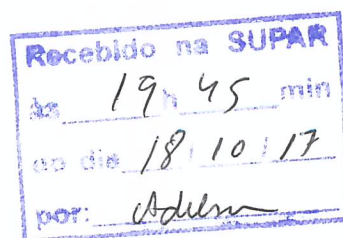 Recebido na SUPAR
às 19 h 45 min
ao dia 18 / 10 / 17
por: